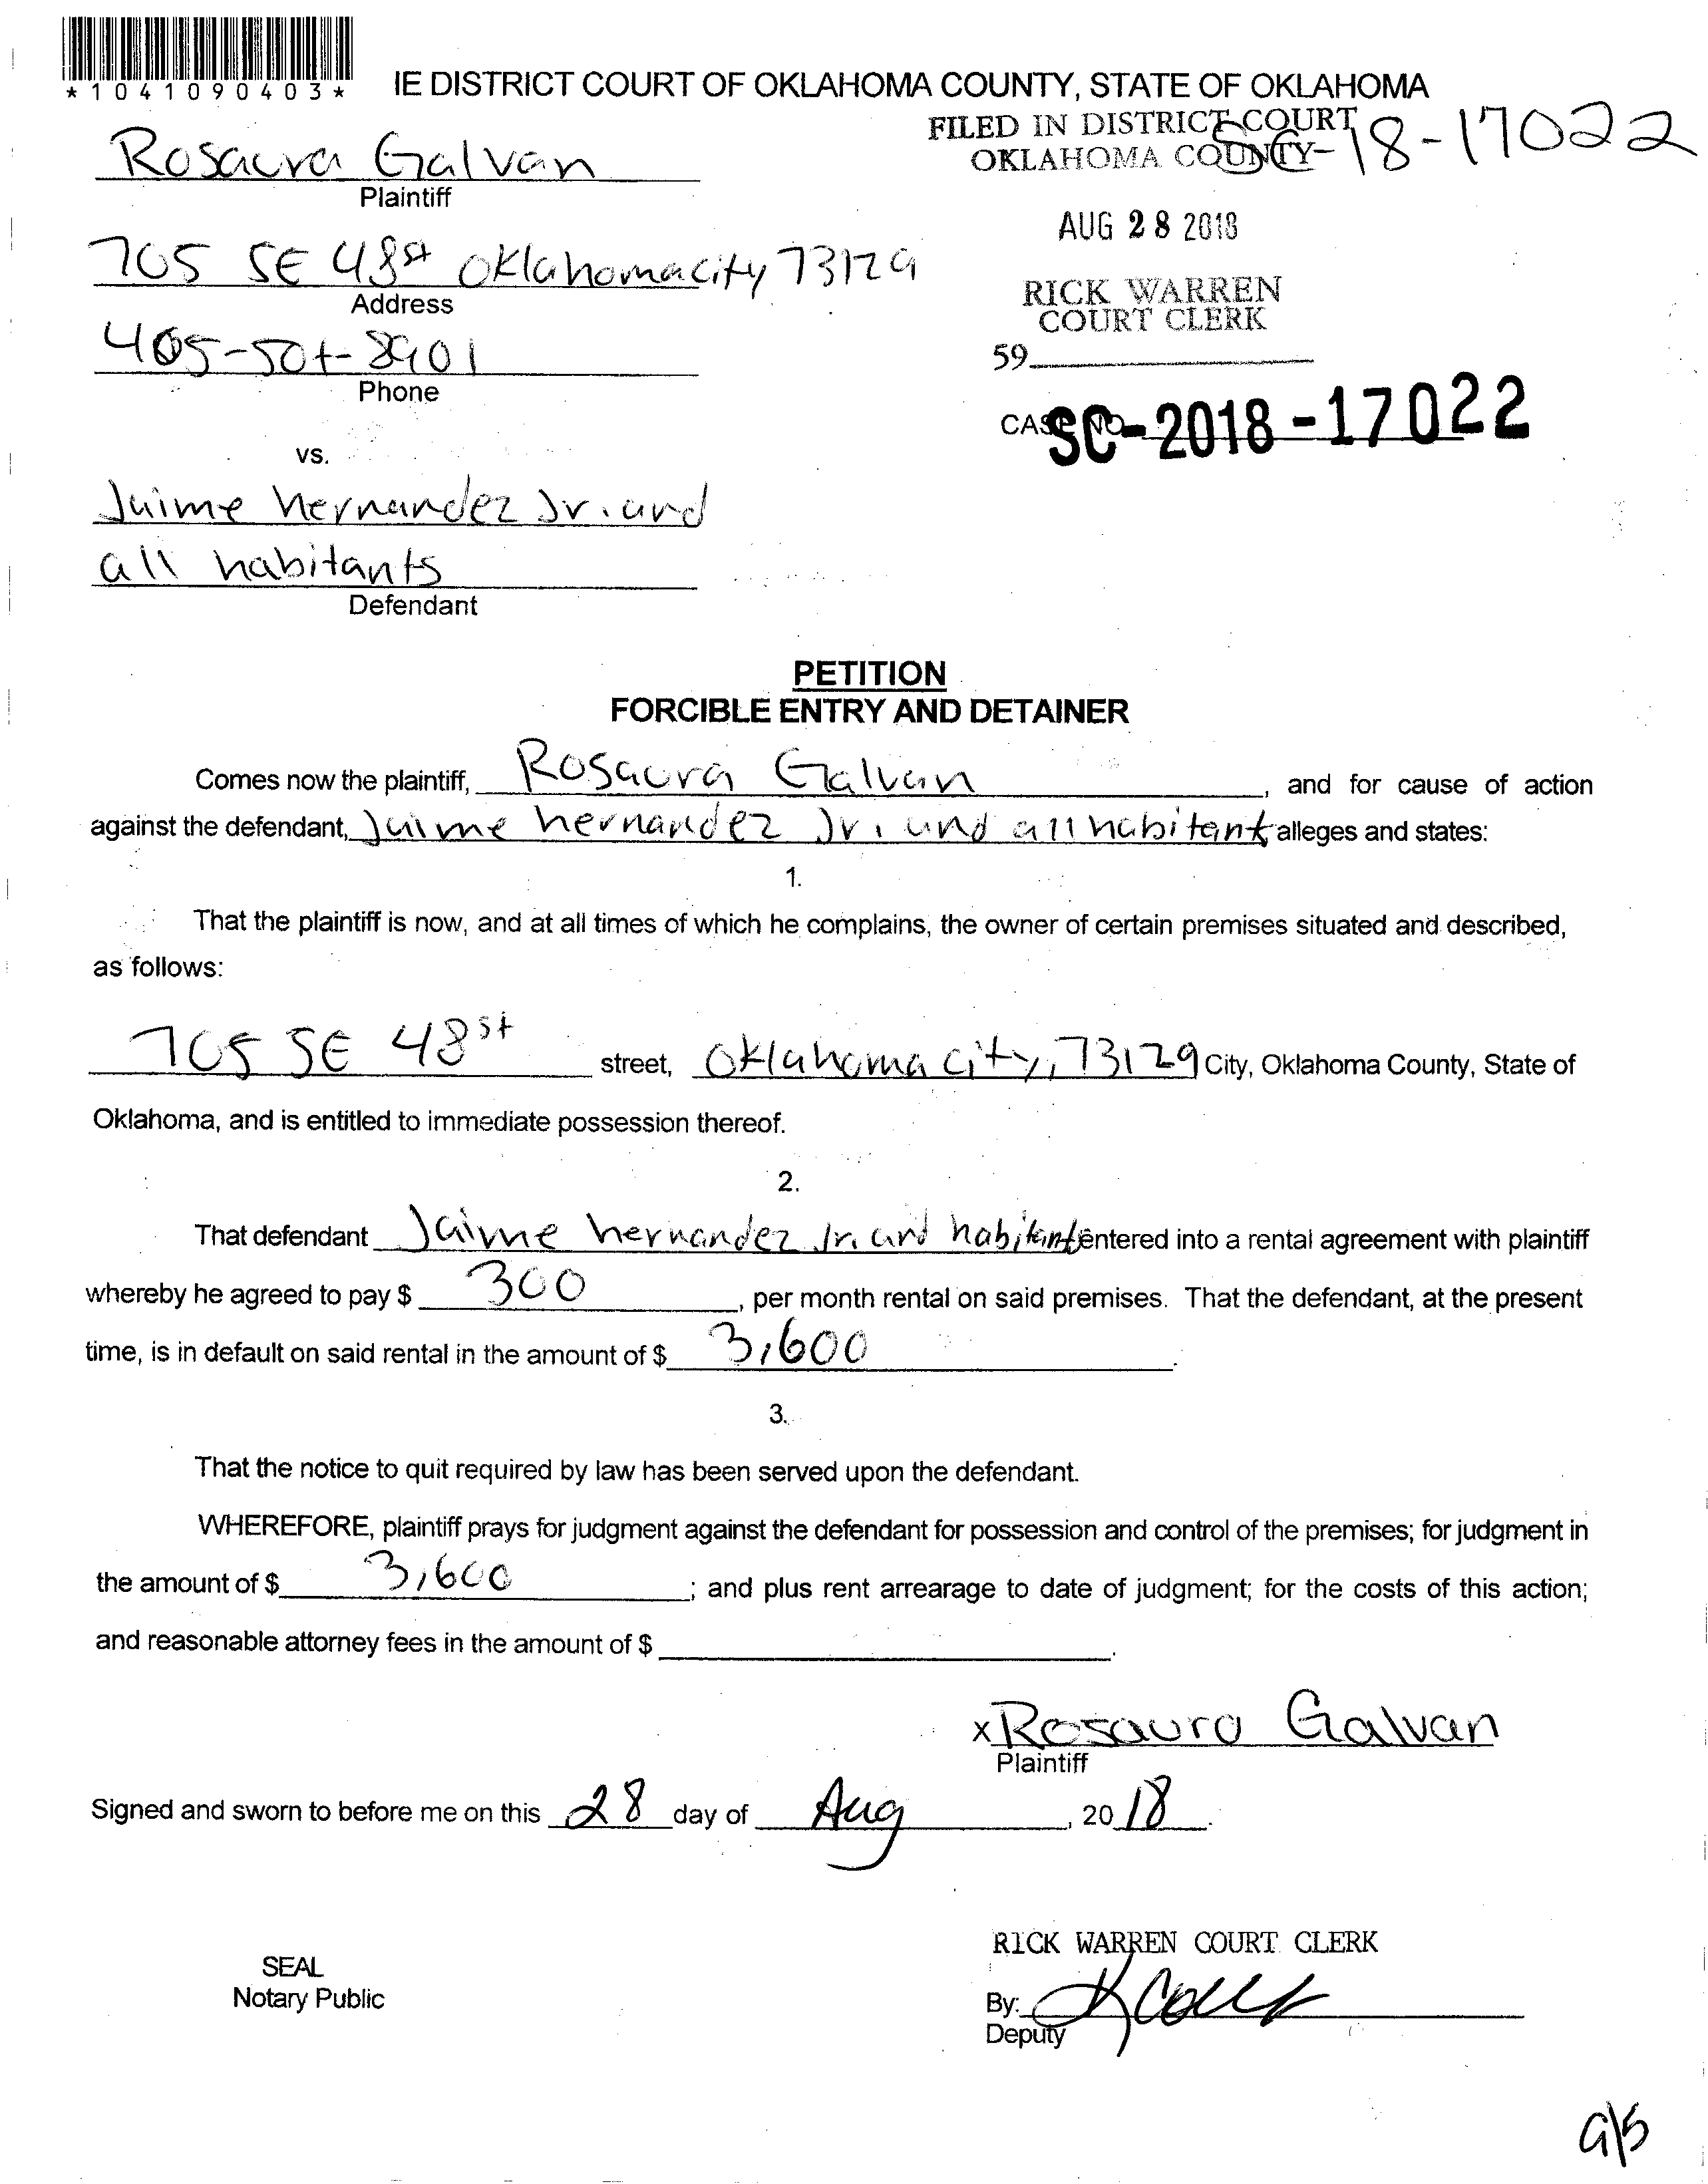 *1041090403*
IE DISTRICT COURT OF OKLAHOMA COUNTY, STATE OF OKLAHOMA
FILED IN DISTRICT COURT
OKLAHOMA COUNTY
SC-18-17022
Rosaura Galvan
Plaintiff
AUG 28 2018
705 SE 48st Oklahomacity 73129
Address
RICK WARREN
COURT CLERK
405-501-8901
Phone
59
CASE NO. SC-2018-17022
vs.
Jaime hernandez Jr. and
all habitants
Defendant
PETITION
FORCIBLE ENTRY AND DETAINER
Comes now the plaintiff, Rosaura Galvan, and for cause of action
against the defendant, Jaime hernandez Jr. and all habitant alleges and states:
1.
That the plaintiff is now, and at all times of which he complains, the owner of certain premises situated and described,
as follows:
705 SE 48st street, Oklahoma city, 73129 City, Oklahoma County, State of
Oklahoma, and is entitled to immediate possession thereof.
2.
That defendant Jaime hernandez Jr. and habitant entered into a rental agreement with plaintiff
whereby he agreed to pay $ 300, per month rental on said premises. That the defendant, at the present
time, is in default on said rental in the amount of $ 3,600.
3.
That the notice to quit required by law has been served upon the defendant.
WHEREFORE, plaintiff prays for judgment against the defendant for possession and control of the premises; for judgment in
the amount of $ 3,600; and plus rent arrearage to date of judgment; for the costs of this action;
and reasonable attorney fees in the amount of $ .
x Rosaura Galvan
Plaintiff
Signed and sworn to before me on this 28 day of Aug, 20 18.
RICK WARREN COURT CLERK
SEAL
Notary Public
By:
Deputy
9/5